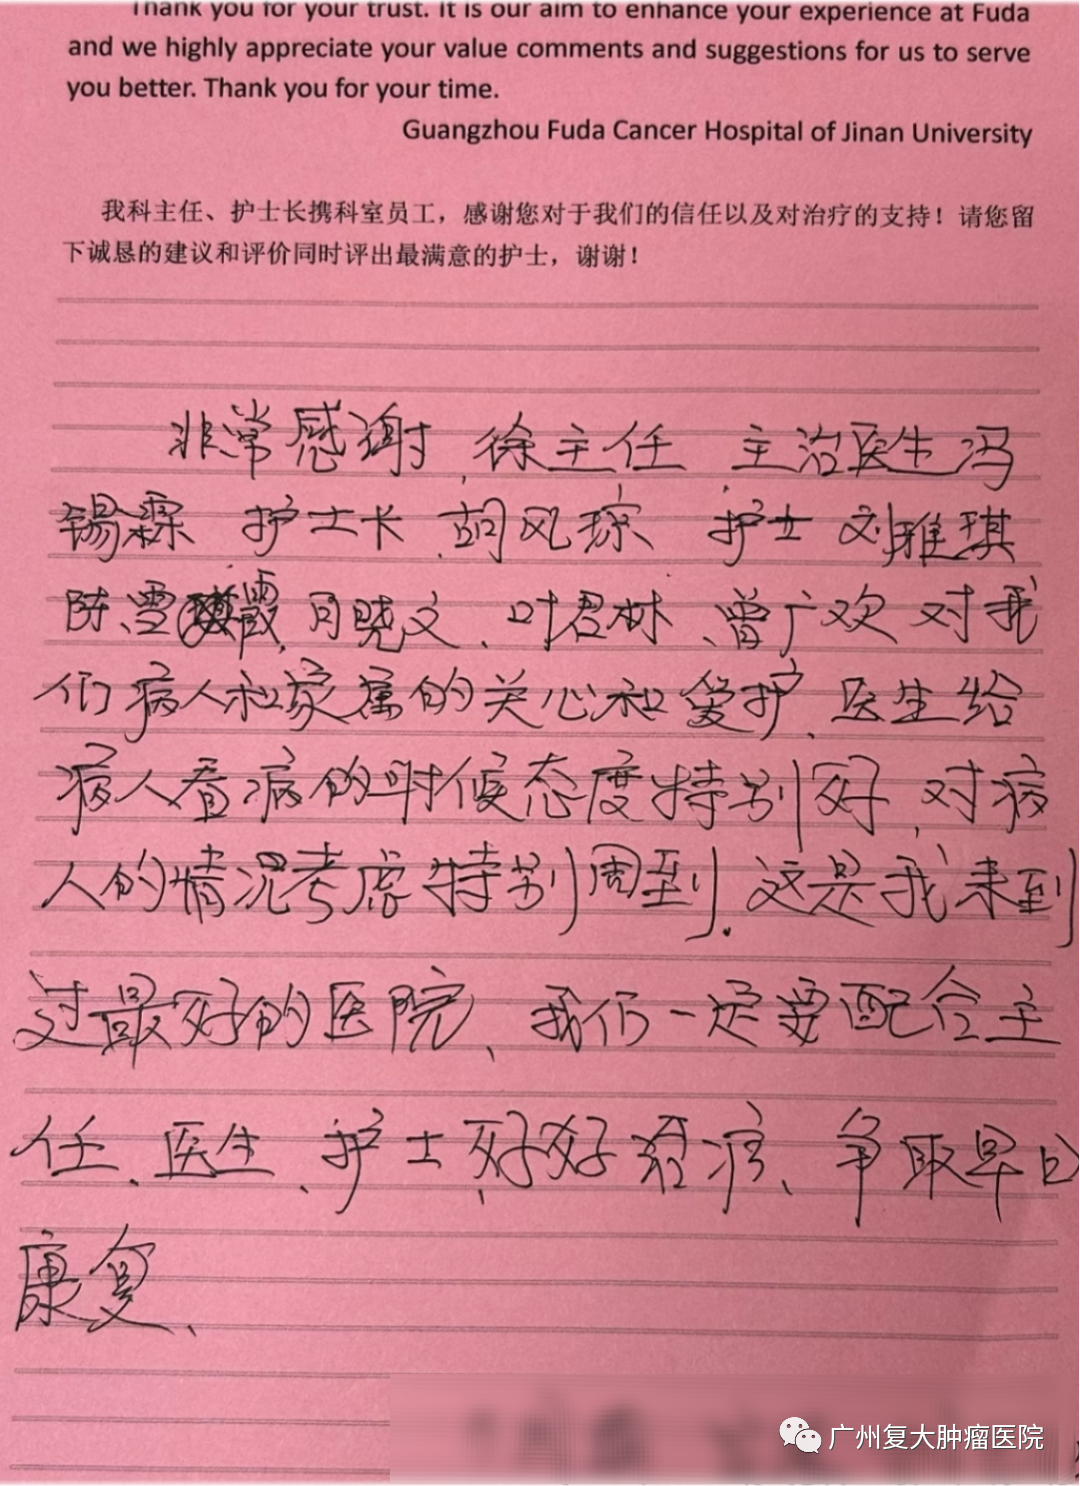 Thank you for your trust. It is our aim to enhance your experience at Fuda
and we highly appreciate your value comments and suggestions for us to serve
you better. Thank you for your time.
Guangzhou Fuda Cancer Hospital of Jinan University
我科主任、护士长携科室员工，感谢您对于我们的信任以及对治疗的支持！请您留
下诚恳的建议和评价同时评出最满意的护士，谢谢！
非常感谢，徐主任 主治医生冯
锡霖 护士长 胡风琼 护士 刘雅琪
陈雪霞，月晓文、叶君林、曾广欢对我
们病人和家属的关心和爱护、医生给
病人看病的时候态度特别好，对病
人的情况考虑特别周到．这是我来到
过最好的医院、我们一定要配合主
任、医生、护士好好治疗、争取早日
康复、
广州复大肿瘤医院